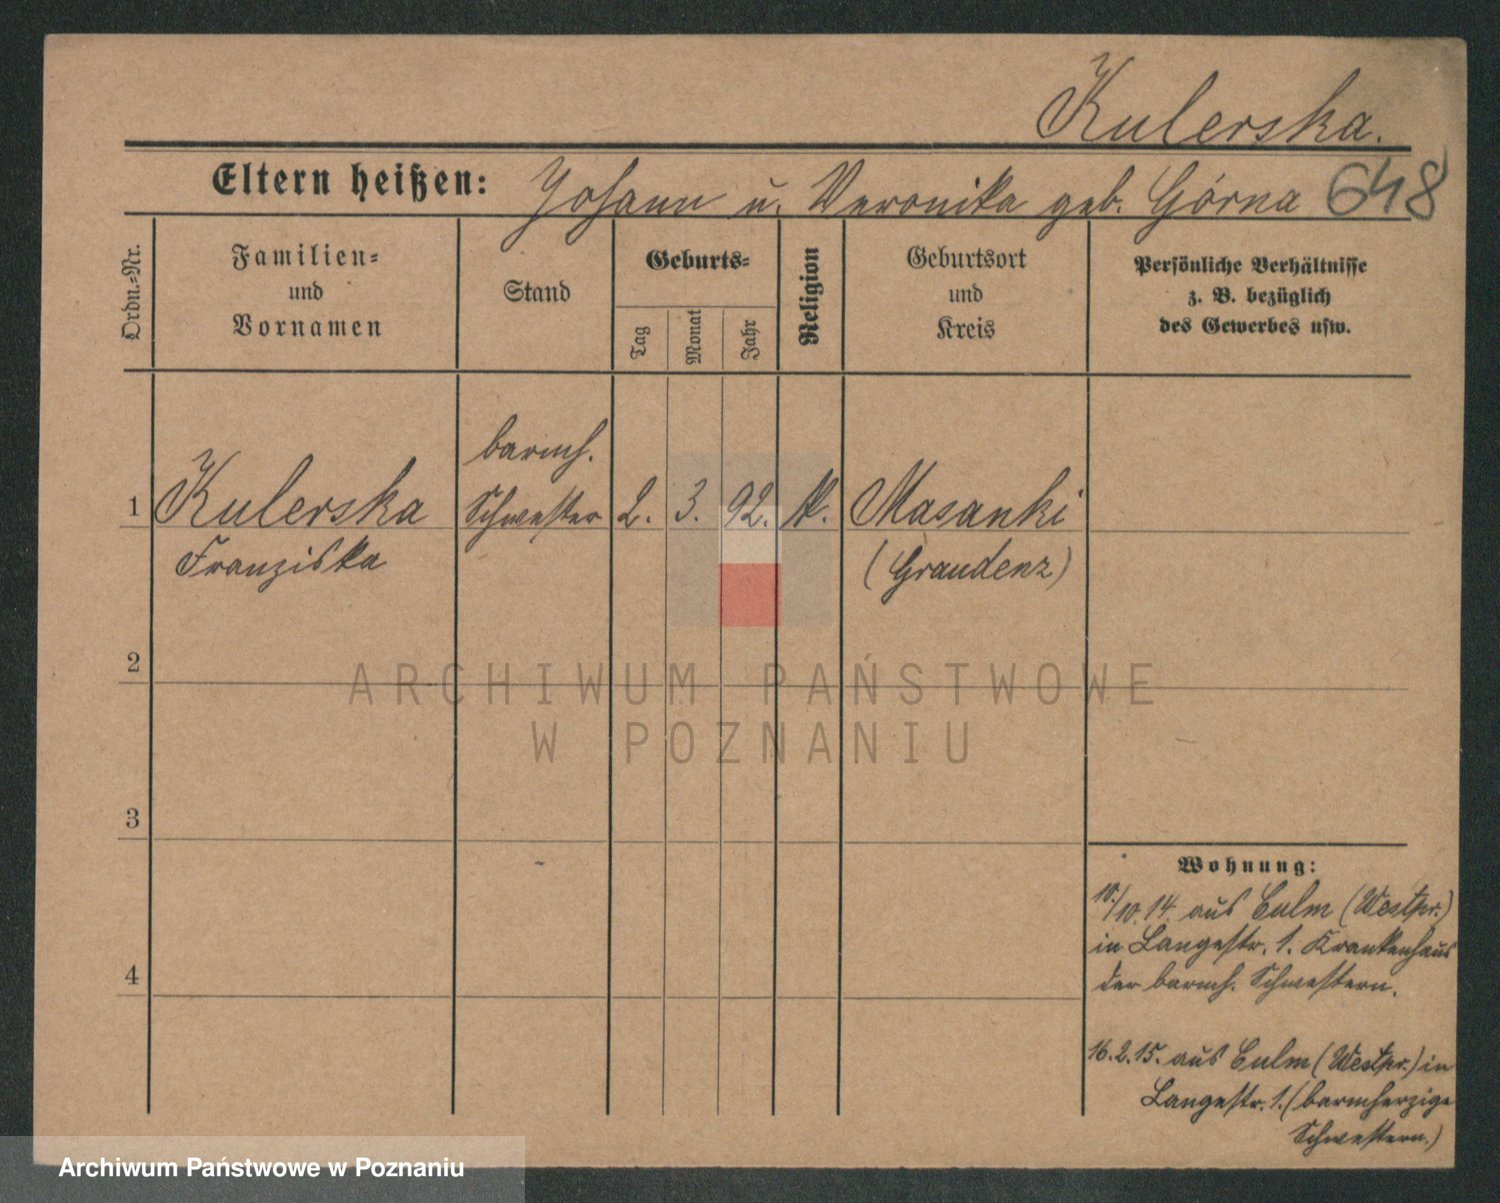 Kulerska.
Eltern heißen: Johann u. Veronika geb. Górna 648
Ordn.=Nr.
Familien=
und
Vornamen
Stand
Geburts=
Tag
Monat
Jahr
Religion
Geburtsort
und
Kreis
Persönliche Verhältnisse
z. B. bezüglich
des Gewerbes usw.
barmh.
1 Kulerska Schwester 2. 3. 92. k. Masanki
Franziska (Graudenz)
2
ARCHIWUM PAŃSTWOWE
W POZNANIU
3
Wohnung:
10./10.14. aus Culm (Westpr.)
in Langestr. 1. Krankenhaus
der barmh. Schwestern.
4
16.2.15. aus Culm (Westpr.) in
Langestr. 1. (barmherzige
Schwestern.)
Archiwum Państwowe w Poznaniu